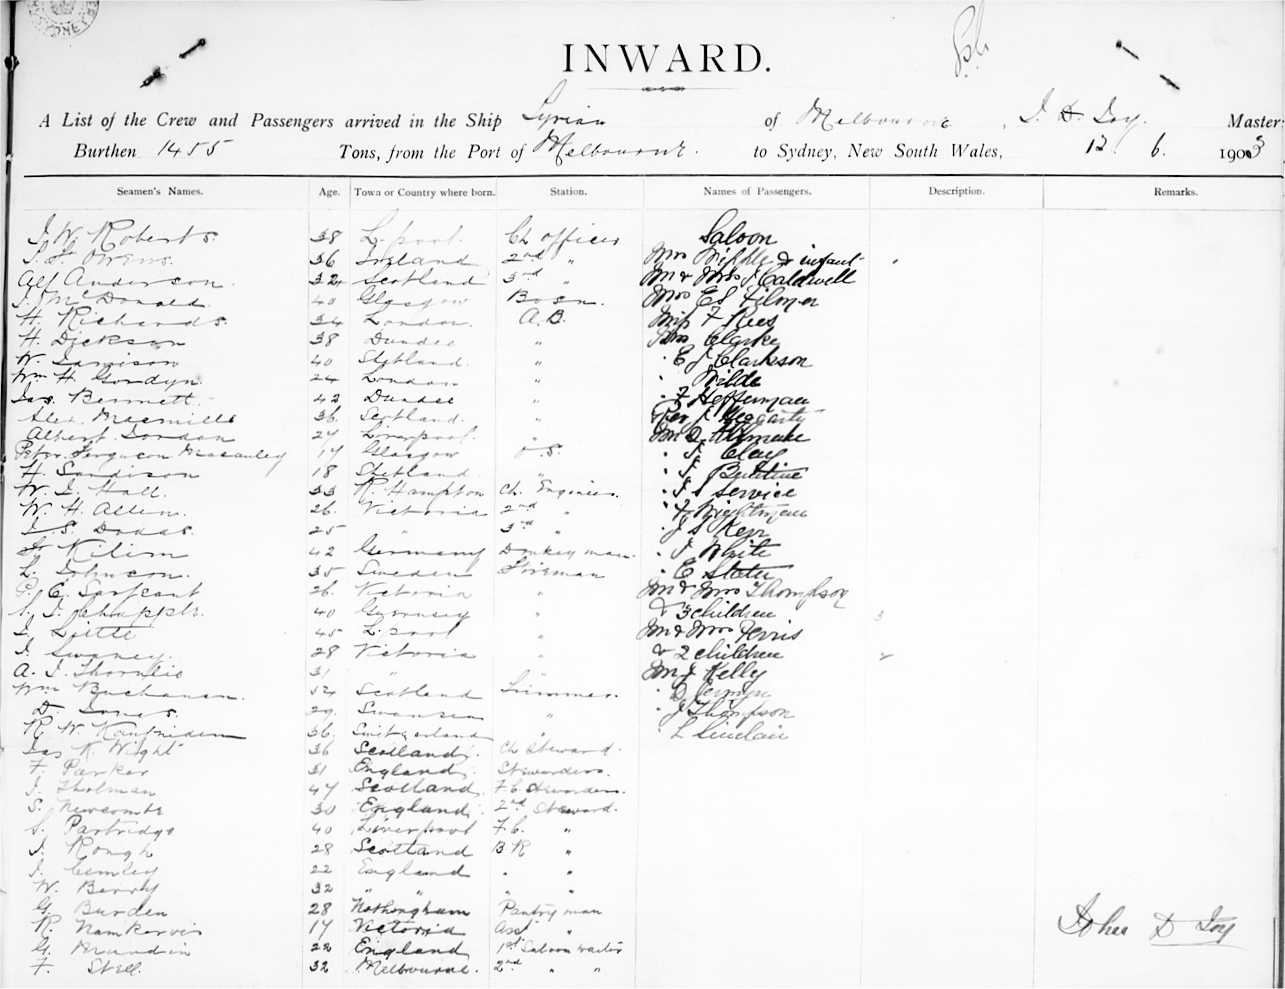 INWARD.
A List of the Crew and Passengers arrived in the Ship Syrian of Melbourne, J. D. Joy. Master,
Burthen 1455 Tons, from the Port of Melbourne. to Sydney, New South Wales, 12. 6. 1903
Seamen's Names. Age. Town or Country where born. Station. Names of Passengers. Description. Remarks.
J. W. Roberts 38 L.pool. Ch officer Saloon
Owens. 36 Ireland 2nd " Mrs & infant
Alf Anderson. 32 Scotland 3rd " Mr & Mrs J Caldwell
J. McDonald. 40 Glasgow Bosn. Mrs E S Filmer
H. Richards. 34 London. A.B. Miss F Rees
H. Dickson 38 Dundee " Mrs Clarke
W. Jamison 40 Shetland. " " E J Clarkson
Wm H. Gordyn. 24 London " " Wilde
Jas. Bennett. 42 Dundee " " F Heffernan
Alex. 36 Scotland. " Rev J Heggarty
Albert London 24 Liverpool. " Mr
Peter Ferguson Macauley 17 Glasgow O.S. " Clay
H. Sandison 18 Shetland. " "
W. J. Hall. 33 R. Hampton Ch. Engineer. " J S Service
W. H. Allen. 26 Victoria 2nd " " F Wightman
J. S. Dodds. 25 " 3rd " " J S Kerr
Kilim 42 Germany Donkeyman. " J White
L. Johnson. 35 Sweden Fireman " E
P. C. Sargeant 26. Victoria " Mr & Mrs Thompson
40 Guernsey " & 3 children 3
J. Little 45 L.pool " Mr & Mrs Ferris
J. Swaney. 28 Victoria " & 2 children 2
A. J. Thornlie 31 " " Mr J Kelly
Wm Buchanan. 54 Scotland Trimmer. " D
D. Jones. 29. Swansea " " J Thompson
R. W. 36. Switzerland " " L Sinclair
Jas K. Wight 36 Scotland. Ch Steward.
F. Parker 31 England. Stewardess.
J. Tholman 47 Scotland. F.C. Stewardess.
S. Newcombe 30 England. 2nd Steward.
S. Partridge 40 Liverpool F.C. "
J. Rough 28 Scotland B R "
J. 22 England " "
W. Berry 32 " " " "
G. Burden 28 Nottingham Pantryman
R. Nankervis 17 Victoria Asst "
G. Mundin 22 England 1st Saloon waiter
F. Still. 32 Melbourne. 2nd " "
John D Joy